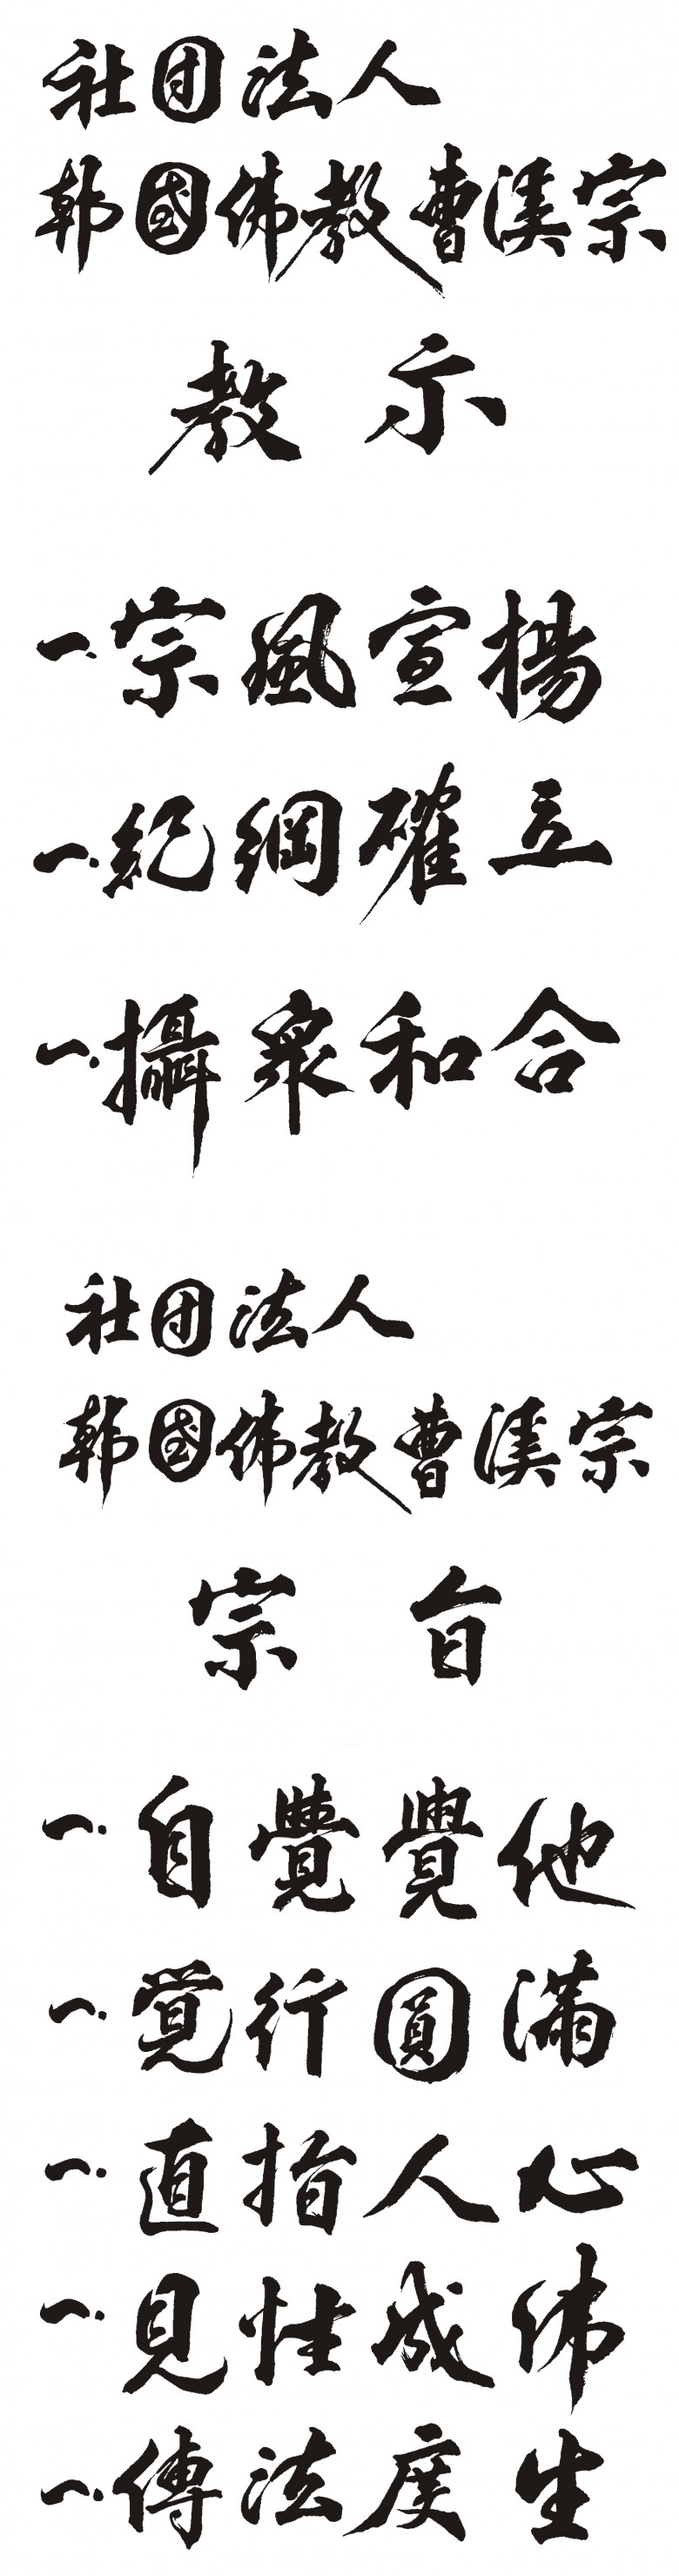 社団法人
韓國佛教曹溪宗
教示
一. 宗風宣揚
一. 紀綱確立
一. 攝衆和合
社団法人
韓國佛教曹溪宗
宗旨
一. 自覺覺他
一. 覚行圓滿
一. 直指人心
一. 見性成佛
一. 傳法度生